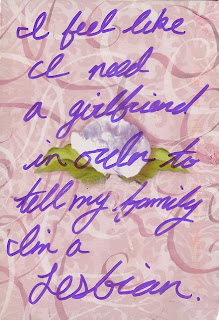 I feel like
I need
a girlfriend
in order to
tell my family
I'm a
Lesbian.